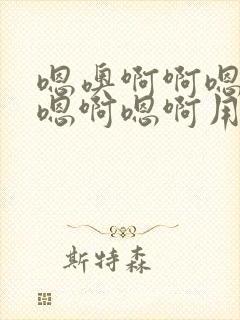 嗯噢啊啊嗯
嗯啊嗯啊用
斯特森